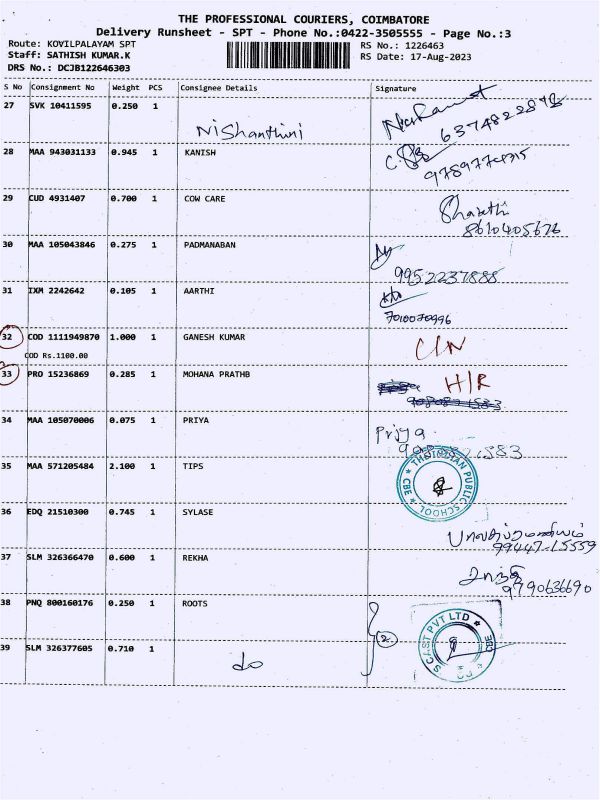 THE PROFESSIONAL COURIERS, COIMBATORE
Delivery Runsheet - SPT - Phone No.:0422-3505555 - Page No.:3
Route: KOVILPALAYAM SPT
RS No.: 1226463
Staff: SATHISH KUMAR.K
RS Date: 17-Aug-2023
DRS No.: DCJB122646303
S No Consignment No Weight PCS Consignee Details Signature
27 SVK 10411595 0.250 1
Nishanthini
6374822848
28 MAA 943031133 0.945 1 KANISH
29 CUD 4931407 0.700 1 COW CARE
8610405676
30 MAA 105043846 0.275 1 PADMANABAN
9952237888
31 IXM 2242642 0.105 1 AARTHI
7010070996
32 COD 1111949870 1.000 1 GANESH KUMAR
COD Rs.1100.00
C/N
33 PRO 15236869 0.285 1 MOHANA PRATHB
H/R
34 MAA 105070006 0.075 1 PRIYA
Priya
35 MAA 571205484 2.100 1 TIPS
THE INDIAN PUBLIC SCHOOL ★ CBE ★
36 EDQ 21510300 0.745 1 SYLASE
பாலசுப்ரமணியம்
99447-15559
37 SLM 326366470 0.600 1 REKHA
9790636690
38 PNQ 800160176 0.250 1 ROOTS
2
S CAST PVT LTD ★ CBE
39 SLM 326377605 0.710 1
do